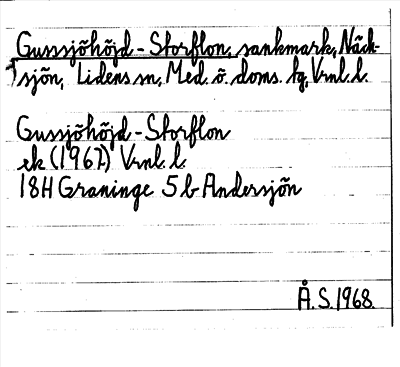 Gussjöhöjd-Storflon, sankmark, Näck-
sjön, Lidens sn, Med. ö. doms. tg, Vrnl. l.
Gussjöhöjd-Storflon
ek (1967) Vrnl. l.
18H Graninge 5 b Andersjön
Å.S. 1968.